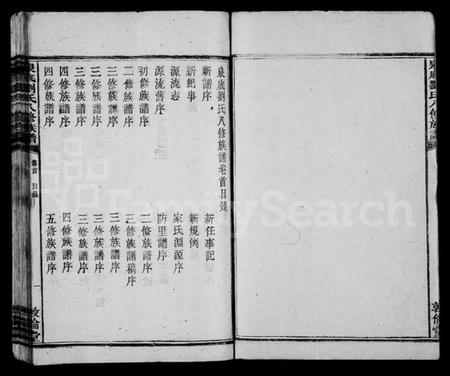 泉底劉氏八修族譜卷首目錄
新譜序
新任事記
新紀事
新規例
源流志
家氏淵源序
源流舊序
防里譜序
初修族譜序
二修族譜序
二修族譜序
三修族譜稿序
三修族譜序
三修族譜序
三修族譜序
三修族譜序
三修族譜序
三修族譜序
四修族譜序
四修族譜序
四修族譜序
五修族譜序
泉底劉氏八修族譜
卷首 目錄
一
敦倫堂
泉底劉氏八修族譜
敦倫堂
FamilySearch